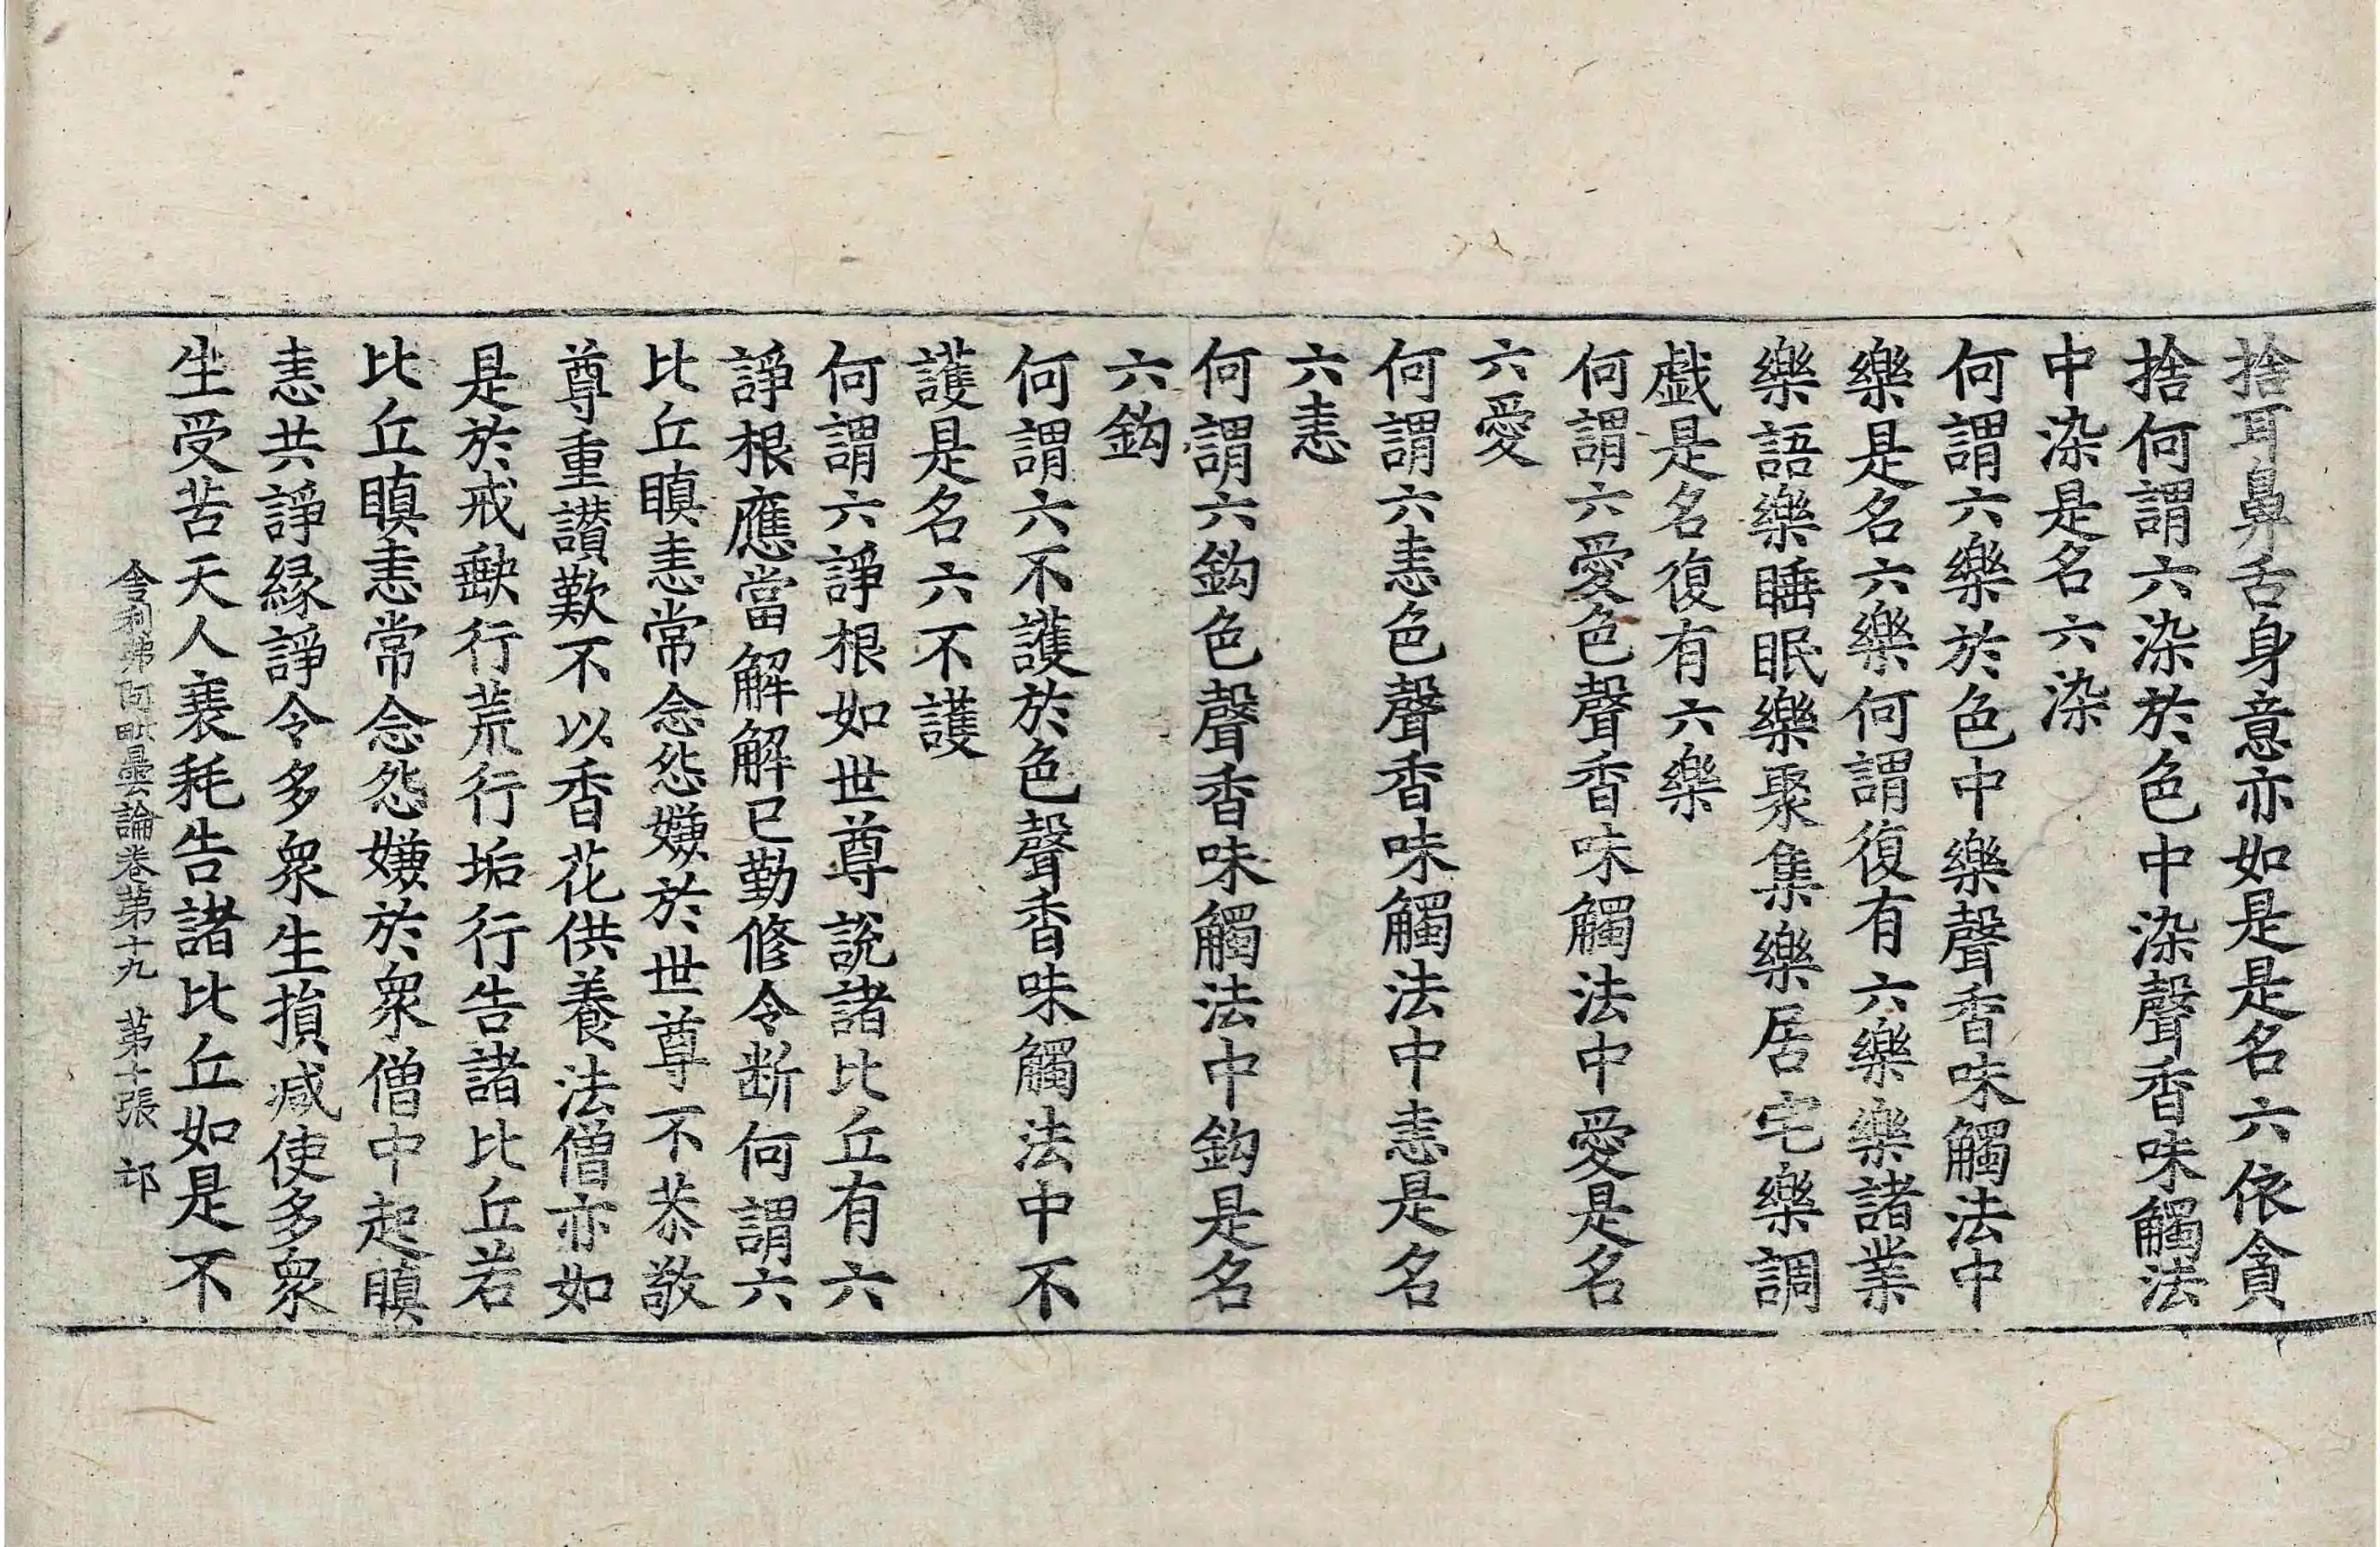 捨耳鼻舌身意亦如是是名六依貪
捨何謂六染於色中染聲香味觸法
中染是名六染
何謂六樂於色中樂聲香味觸法中
樂是名六樂何謂復有六樂樂諸業
樂語樂睡眠樂聚集樂居宅樂調
戯是名復有六樂
何謂六愛色聲香味觸法中愛是名
六愛
何謂六恚色聲香味觸法中恚是名
六恚
何謂六鈎色聲香味觸法中鈎是名
六鈎
何謂六不護於色聲香味觸法中不
護是名六不護
何謂六諍根如世尊說諸比丘有六
諍根應當解解已勤修令断何謂六
比丘瞋恚常念怨嫌於世尊不恭敬
尊重讃歎不以香花供養法僧亦如
是於戒缺行荒行垢行告諸比丘若
比丘瞋恚常念怨嫌於衆僧中起瞋
恚共諍緣諍令多衆生損减使多衆
生受苦天人衰耗告諸比丘如是不
舍利弗阿毗曇論卷第十九　第十張　邙